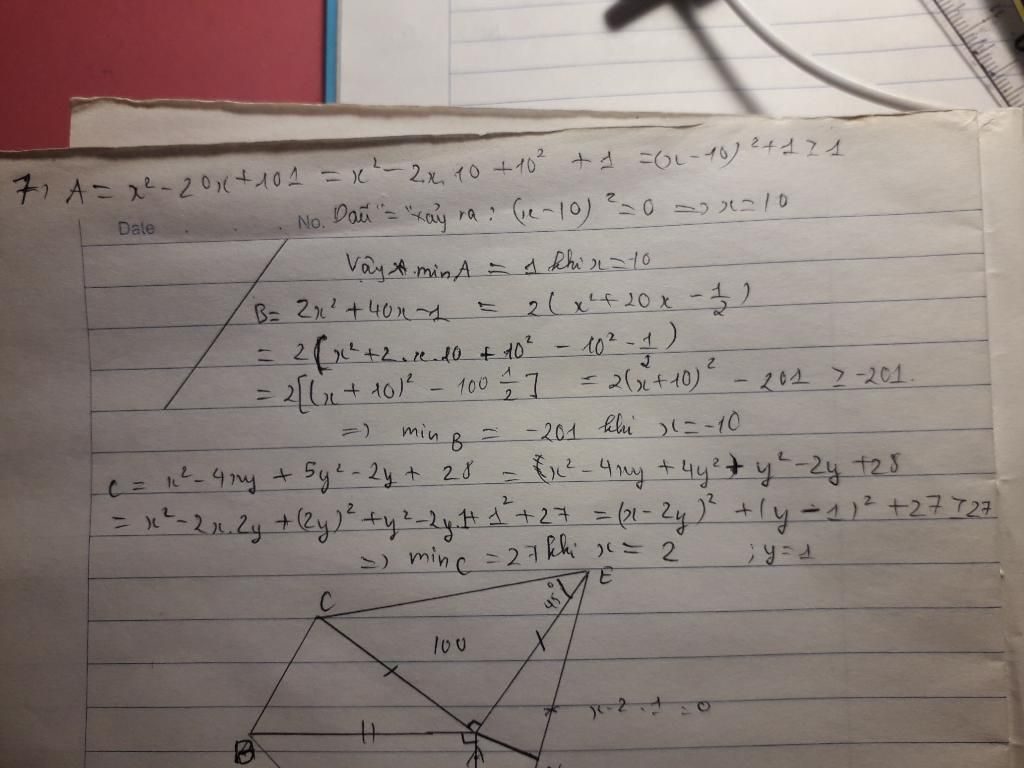 7, A = x² - 20x + 101 = x² - 2x.10 + 10² + 1 = (x - 10)² + 1 ≥ 1
Date No. Dấu "=" xảy ra : (x - 10)² = 0 => x = 10
Vậy min A = 1 khi x = 10
B = 2x² + 40x - 1 = 2(x² + 20x - 1/2)
= 2(x² + 2.x.10 + 10² - 10² - 1/2)
= 2[(x + 10)² - 100 1/2] = 2(x + 10)² - 201 ≥ -201.
=> min B = -201 khi x = -10
C = x² - 4xy + 5y² - 2y + 28 = (x² - 4xy + 4y² + y² - 2y + 28
= x² - 2x.2y + (2y)² + y² - 2y1 + 1² + 27 = (x - 2y)² + (y - 1)² + 27 ≥ 27
=> min C = 27 khi x = 2 ; y = 1
E
45°
C
100
x - 2 . 1 = 0
B